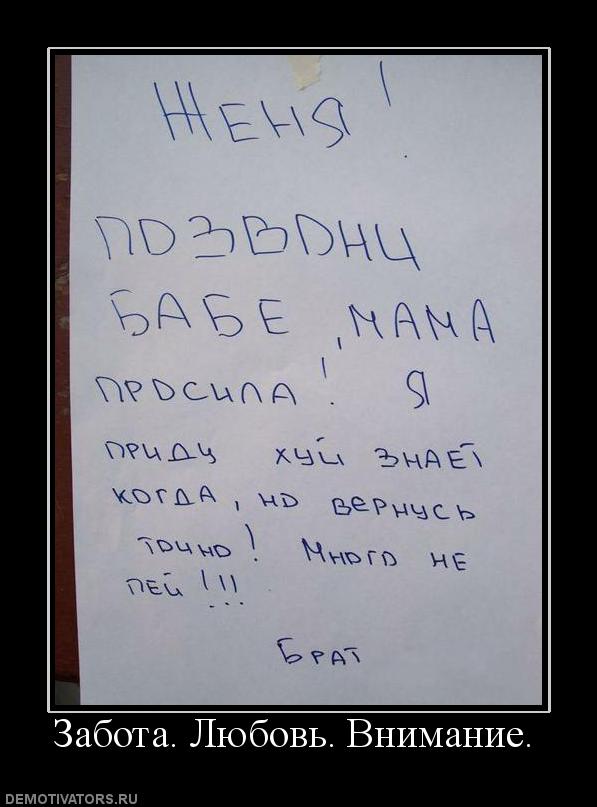 ЖЕНЯ!
ПОЗВОНИ
БАБЕ, МАМА
ПРОСИЛА! Я
ПРИДУ ХУЙ ЗНАЕТ
КОГДА, НО ВЕРНУСЬ
ТОЧНО! МНОГО НЕ
ПЕЙ!!!
БРАТ
Забота. Любовь. Внимание.
DEMOTIVATORS.RU